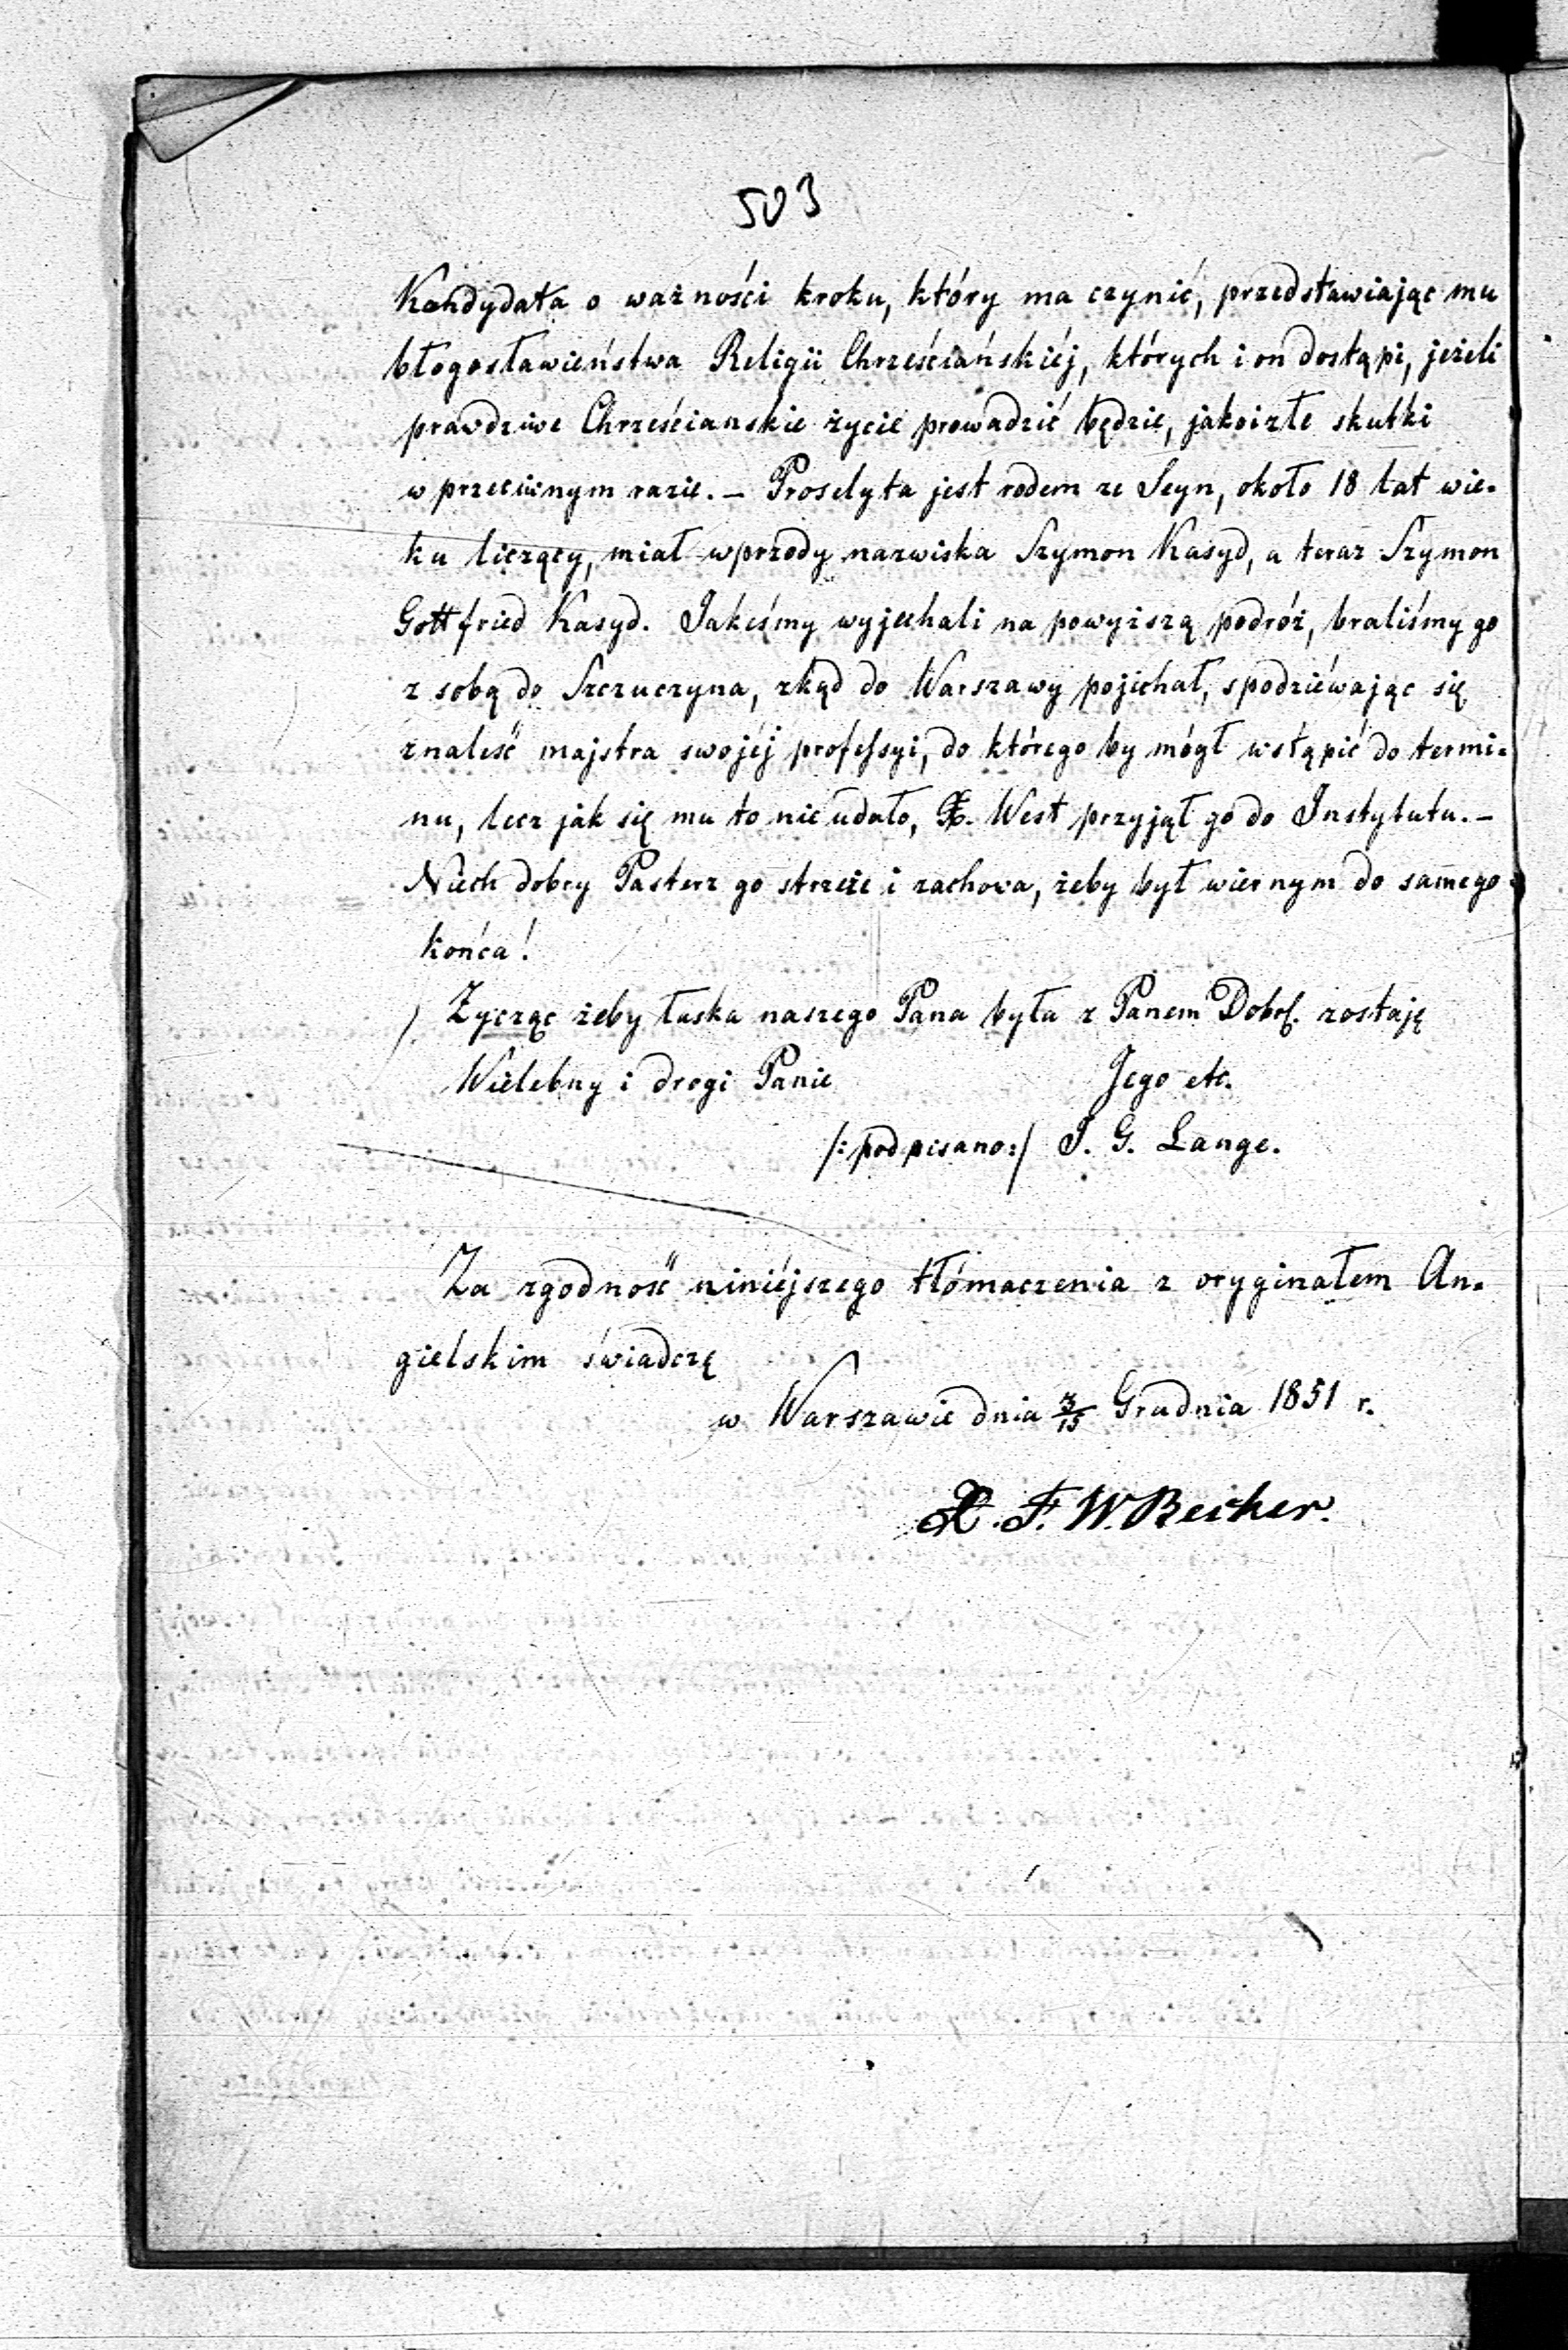 503
Kandydata o ważności kroku, który ma czynić, przedstawiając mu
błogosławieństwa Religii Chrześciańskiéj, których i on dostąpi, jeżeli
prawdziwe Chrześcianskie życie prowadzić będzie, jakoizłe skutki
w przeciwnym razie. – Proselyta jest rodem ze Seyn, około 18 lat wie-
ku liczący, miał wprzody nazwiska Szymon Kasyd, a teraz Szymon
Gottfried Kasyd. Jakeśmy wyjechali na powyższą podróż, braliśmy go
z sobą do Szczuczyna, zkąd do Warszawy pojechał, spodziéwając się
znaleść majstra swojéj professyi, do którego by mógł wstąpić do termi-
nu, lecz jak się mu to nie udało, X. West przyjął go do Instytutu. –
Niech dobry Pasterz go strzeże i zachowa, żeby był wiernym do samego
końca!
Zycząc żeby łaska naszego Pana była z Panem Dobr. zostaję
Wielebny i drogi Panie Jego etc.
/: podpisano :/ J. G. Lange.
Za zgodność niniéjszego tłómaczenia z oryginałem An-
gielskim świadczę
w Warszawie dnia 3/15 Grudnia 1851 r.
X. F. W. Becker.